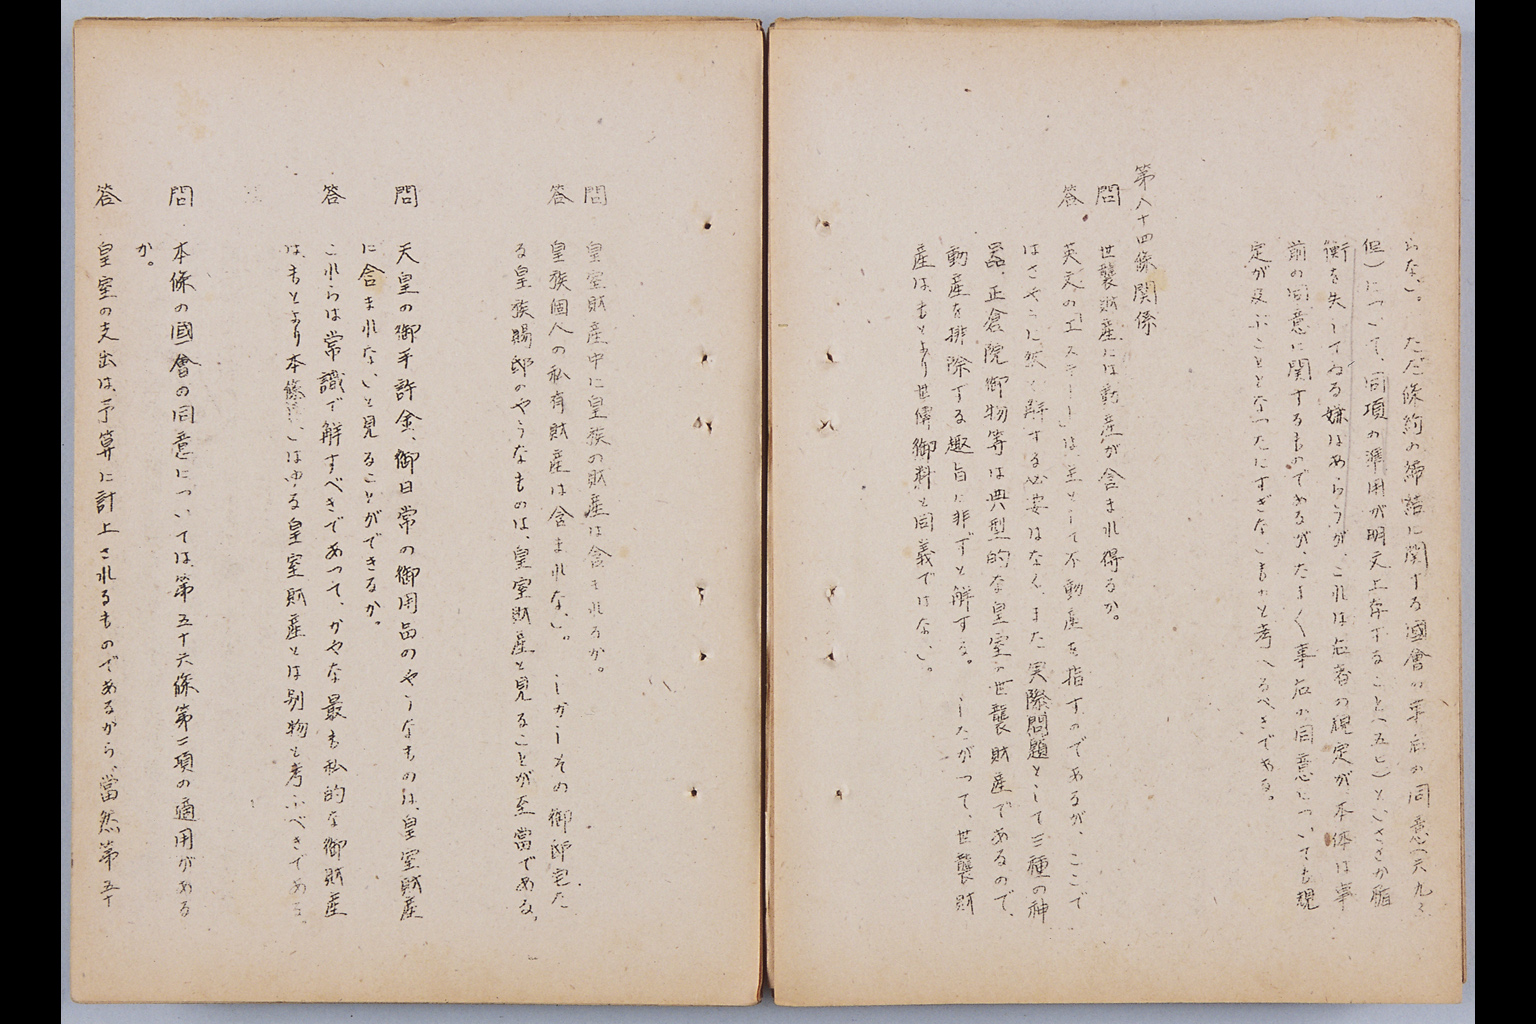 らない。 ただ條約の締結に関する國會の事后の同意(六九3
但)について、同項の準用が明文上存すること(五七)といささか権
衡を失してゐる嫌はあらうが、これは后者の規定が、本体は事
前の同意に関するものであるが、たまく事后の同意についても規
定が及ぶこととなつたにすぎないものと考へるべきである。
第八十四條関係
問 世襲財産には動産が含まれ得るか。
答 英文の「エステート」は主として不動産を指すのであるが、ここで
はさやうに狭く解する必要はなく、また実際問題として三種の神
器、正倉院御物等は典型的な皇室の世襲財産であるので、
動産を排除する趣旨に非ずと解する。 したがつて、世襲財
産はもとより世傳御料と同義ではない。
問 皇室財産中に皇族の財産は含まれるか。
答 皇族個人の私有財産は含まれない。 しかしその御邸宅た
る皇族賜邸のやうなものは、皇室財産と見ることが至當である。
問 天皇の御手許金、御日常の御用品のやうなものは、皇室財産
に含まれないと見ることができるか。
答 これらは常識で解すべきであつて、かやうな最も私的な御財産
は、もとより本條にいはゆる皇室財産とは別物と考ふべきである。
問 本條の國會の同意については、第五十六條第二項の適用がある
か。
答 皇室の支出は、予算に計上されるものであるから、當然第五十